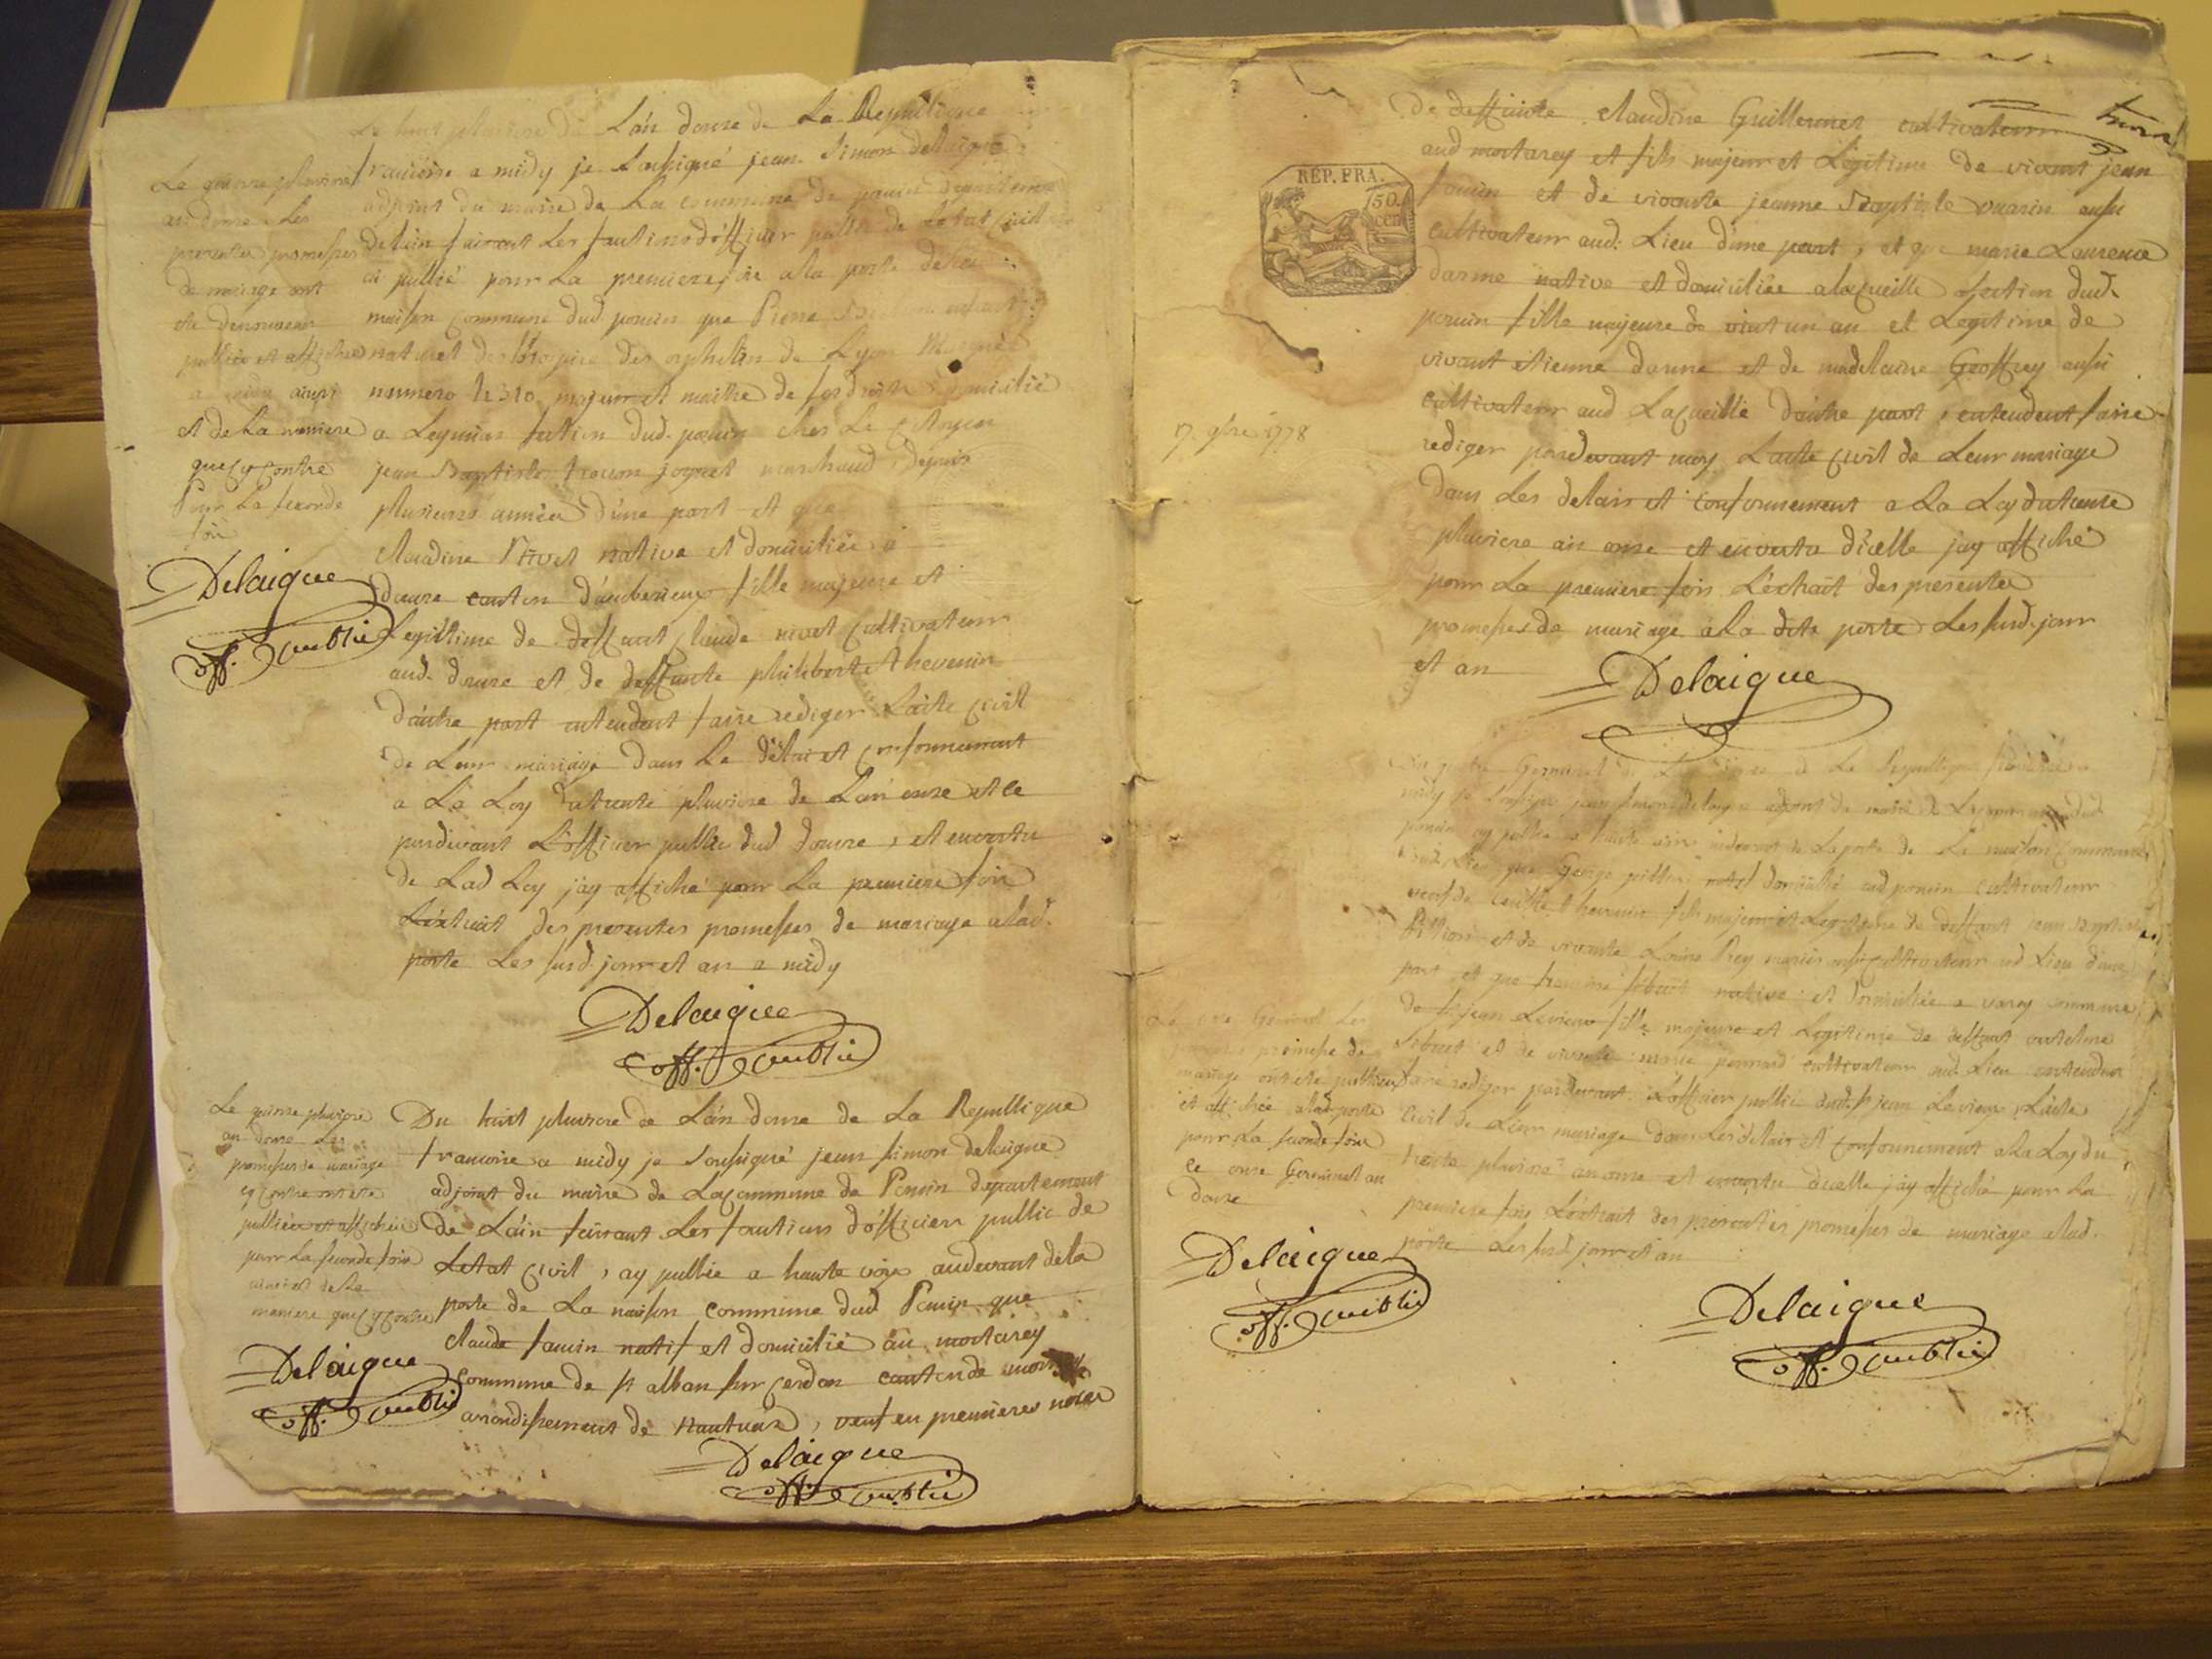 Le huit pluviose de L'an douze de La Republique
francoise a midy je Soussigné jean Simon delaigue
adjoint du maire de La commune de poncin departement
delain faisant Les fonctions d'officier public de Letat Civil
ai publié pour La premiere fois a la porte de la
maison Commune dud poncin que Pierre enfant
naturel de Lhospice des orphelin de Lyon
numero majeur et maitre de ses droits domicilié
a Leymiat section dud. poncin ches Le Citoyen
jean Baptiste marchand depuis
plusieurs année d'une part et que
claudine Nivet native et domiciliée a
douvre canton d'amberieux fille majeure et
Legitime de deffunt Claude nivet Cultivateur
aud. douvre et de deffunte philiberte thevenin
d'autre part entendent faire rediger L'acte Civil
de Leur mariage dans Le délai et Conformement
a La Loy du trente pluviose de L'an onze et ce
pardevant L'officier public dud douvre, et en vertu
de Lad Loy j'ay affiché pour La premiere fois
L'extrait des presentes promesses de mariage a lad.
porte Les susd. jour et an a midy
Delaigue
off. public
Le quinze pluviose
an douze Les
presentes promesses
de mariage ont
été denouveau
publiée et affichée
a midy ainsi
et de La maniere
que Cy Contre
Pour La seconde
fois
Delaigue
off. public
Du huit pluviose de L'an douze de La Republique
francoise a midy je Soussigné jean simon delaigue
adjoint du maire de La Commune de Poncin departement
de L'ain faisant Les fonctions d'officier public de
Letat Civil, ay publié a haute voix audevant de la
porte de La maison commune dud Poncin que
claude famin natif et domicilié au mortarey
commune de st alban sur Cerdon canton de
arondissement de Nantua, veuf en premieres noces
Delaigue
off. public
Le quinze pluviose
an douze Les
promesses de mariage
cy Contre ont été
publiée et affichée
pour La seconde fois
ainsi et de La
maniere que Cy Contre
Delaigue
off. public
de deffunte claudine Guillermet cultivateur
aud mortarey et fils majeur et Legitime de vivant jean
famin et de vivante jeanne Baptiste vuarin aussi
cultivateur aud. Lieu d'une part, et que marie Laurence
darme native et domiciliée a laCueille Section dud.
poncin fille majeure de vint un an et Legitime de
vivant etienne darme et de madelaine Geoffrey aussi
cultivateur aud LaCueille d'autre part, entendent faire
rediger pardevant moy L'acte Civil de Leur mariage
dans Les delais et conformement a La Loy du trente
pluviose an onze et en vertu d'icelle j'ay affiché
pour La premiere fois L'extrait des presentes
promesses de mariage a La dite porte Les susd. jour
et an
Delaigue
REP. FRA.
50 cen
17. 9bre 1778
Germinal de La Republique
midy je soussigné jean simon delaigue adjont du maire de La commune dud
poncin ay publié a haute voix audevant de La porte de La maison Commune
dud. Lieu que George pittion natif domicilié aud poncin cultivateur
veuf de thevenin fils majeur et Legitime de deffunt jean Baptiste
Pittion et de vivante Louise Rey mariés aussi Cultivateur aud Lieu d'une
part et que native et domiciliée a varey commune
de st jean Le vieux fille majeure et Legitime de deffunt antelme
et de vivante marie cultivateur aud. Lieu entendent
faire rediger pardevant L'officier public dud. st jean Le vieux L'acte
Civil de Leur mariage dans Les delais et Conformement a La Loy du
trente pluviose an onze et en vertu d'icelle j'ay affiché pour La
premiere fois L'extrait des presentes promesses de mariage a lad.
porte Les susd. jour et an
Delaigue
off. public
Germinal Les
promesse de
mariage ont eté publiées
et affichée a lad. porte
pour La seconde fois
Ce onze Germinal an
douze
Delaigue
off. public